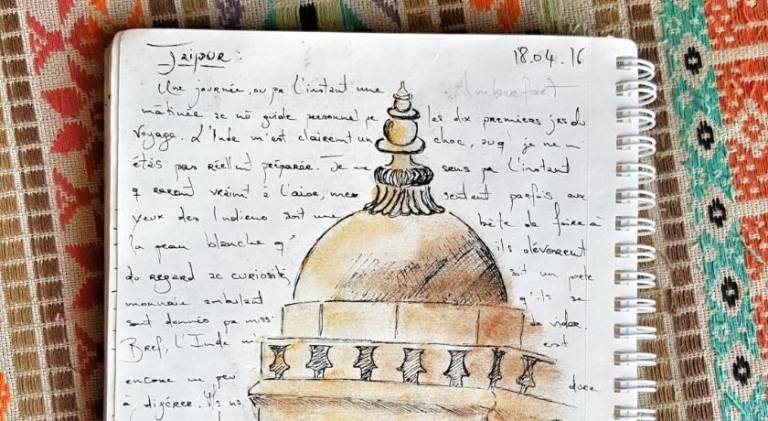 Jaipur : 18.04.16
Une journée, ou pr l'instant une Amberfort
matinée ac nô guide personnel pr les dix premiers jrs du
voyage. L'Inde m'est clairemt un choc, auq' je ne m'
étais pas réellmt préparée. Je ne sens pr l'instant
q rarmt vraimt à l'aise, me sentant parfois aux
yeux des Indiens soit une bête de foire à
la peau blanche q' ils dévorent
du regard ac curiosité, soit un porte
monnaie ambulant qu'ils se
sont donnés pr miss de vider.
Bref, l'Inde m' est
encore un peu dure
à digérer.